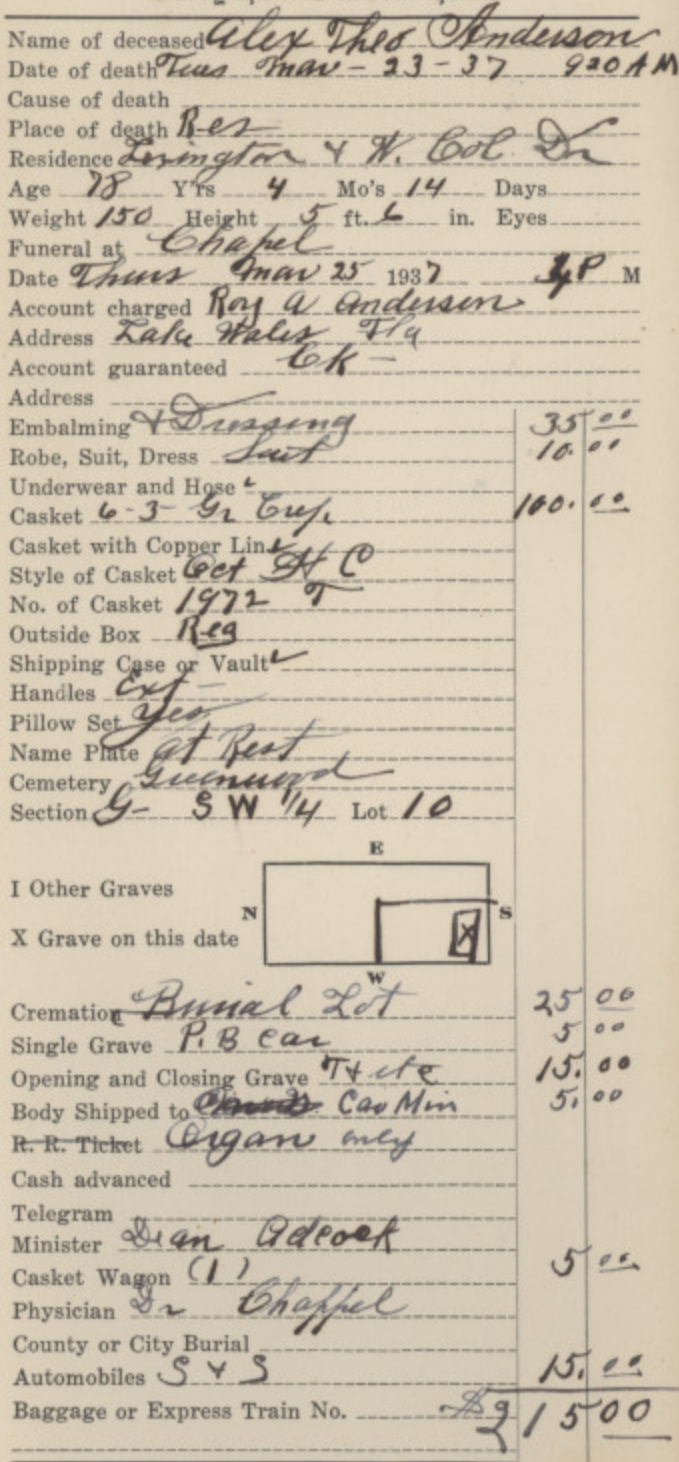 Name of deceased Alex Theo Anderson
Date of death Tues Mar - 23 - 37 920 AM
Cause of death
Place of death Res
Residence Lexington & W. Col Dr
Age 78 Y'rs 4 Mo's 14 Days
Weight 150 Height 5 ft. 6 in. Eyes
Funeral at Chapel
Date Thurs Mar 25 1937 4 P M
Account charged Roy A Anderson
Address Lake Wales Fla
Account guaranteed OK -
Address
Embalming & Dressing 35 00
Robe, Suit, Dress Suit 10.00
Underwear and Hose
Casket 6-3 Gr Crep 100.00
Casket with Copper Lin
Style of Casket Oct C
No. of Casket 1972 T
Outside Box Reg
Shipping Case or Vault
Handles Ext -
Pillow Set Yes
Name Plate At Rest
Cemetery Greenwood
Section G- SW 1/4 Lot 10
E
I Other Graves
N S
X Grave on this date X
W
Cremation Burial Lot 25 00
Single Grave P.B car 5 00
Opening and Closing Grave T & etc 15.00
Body Shipped to Car Min 5.00
R. R. Ticket Organ only
Cash advanced
Telegram
Minister Dean Adcock
Casket Wagon (1) 5 00
Physician Dr Chappel
County or City Burial
Automobiles S & S 15.00
Baggage or Express Train No. $215 00